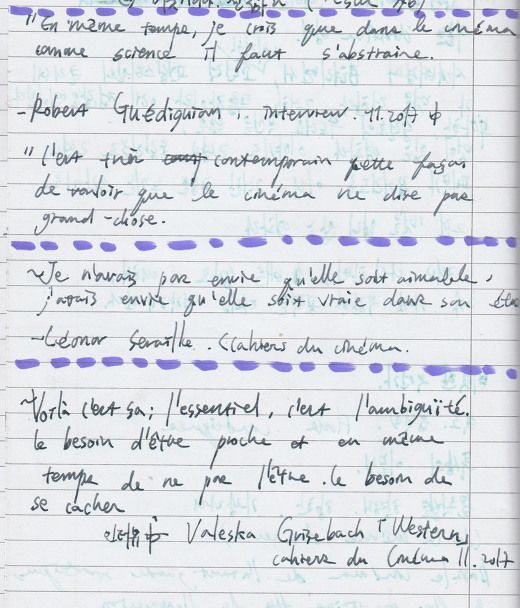 "En même tempe, je crois que dans le cinéma
comme science il faut s'abstraine.
- Robert Guédiguian, interview. 11.2017 中
"C'est très contemporain cette façon
de vouloir que le cinéma ne dise pas
grand-chose.
~Je n'avais pas envie qu'elle soit aimable,
j'avais envie qu'elle soit vraie dans son
-Léonor Seraille. Cahiers du cinéma.
~Voilà c'est ça; l'essentiel, c'est l'ambiguïté.
le besoin d'être proche et en même
tempe de ne pas l'être. le besoin de
se cacher
인터뷰 中 Valeska Grisebach 「Western」
cahiers du Cinéma 11.2017